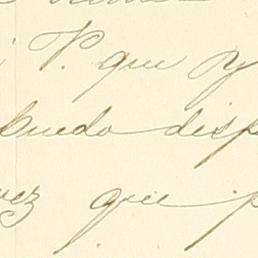 V. que y
puedo disp
vez que p